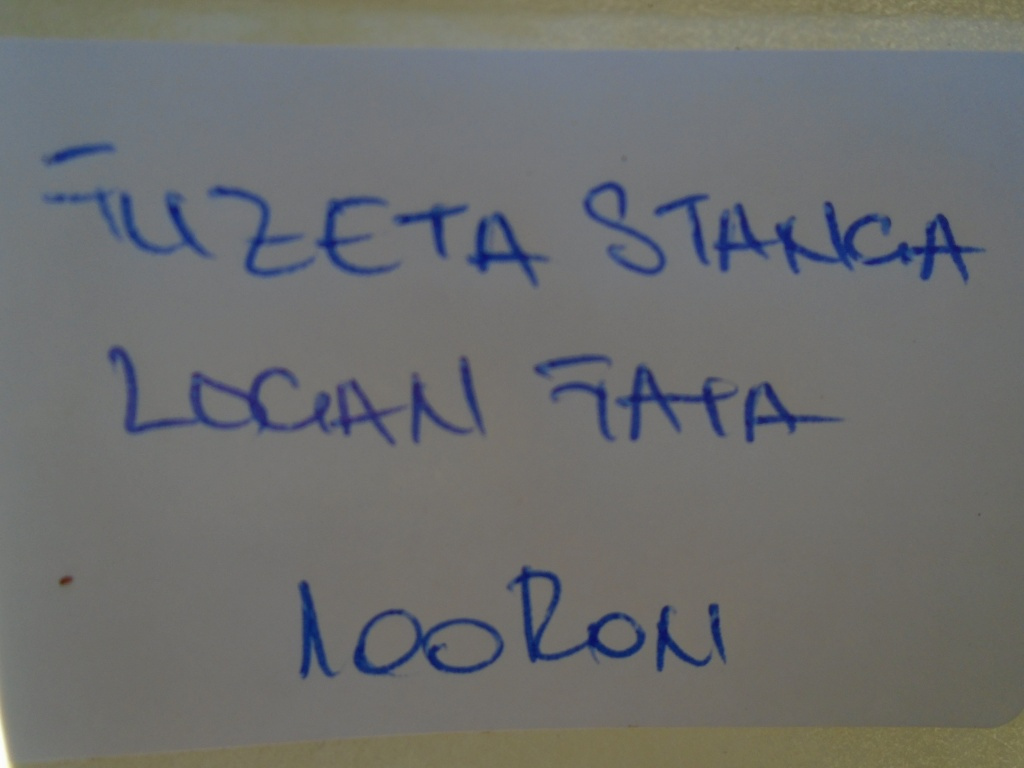 FUZETA STANGA
LOGAN FATA
100 RON